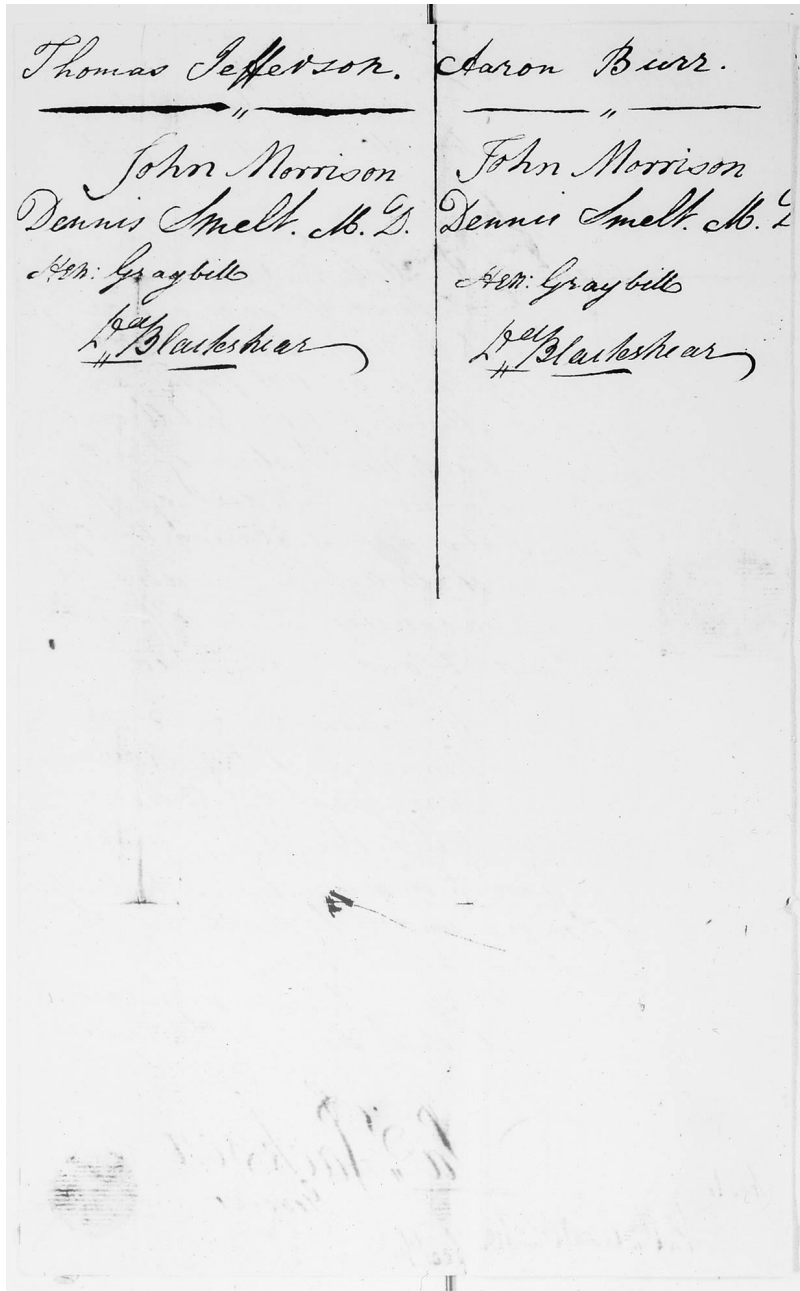 Thomas Jefferson.
John Morrison
Dennis Smelt. M. D.
Hen: Graybill
Dd. Blackshear
Aaron Burr.
John Morrison
Dennis Smelt. M.
Hen: Graybill
Dd. Blackshear